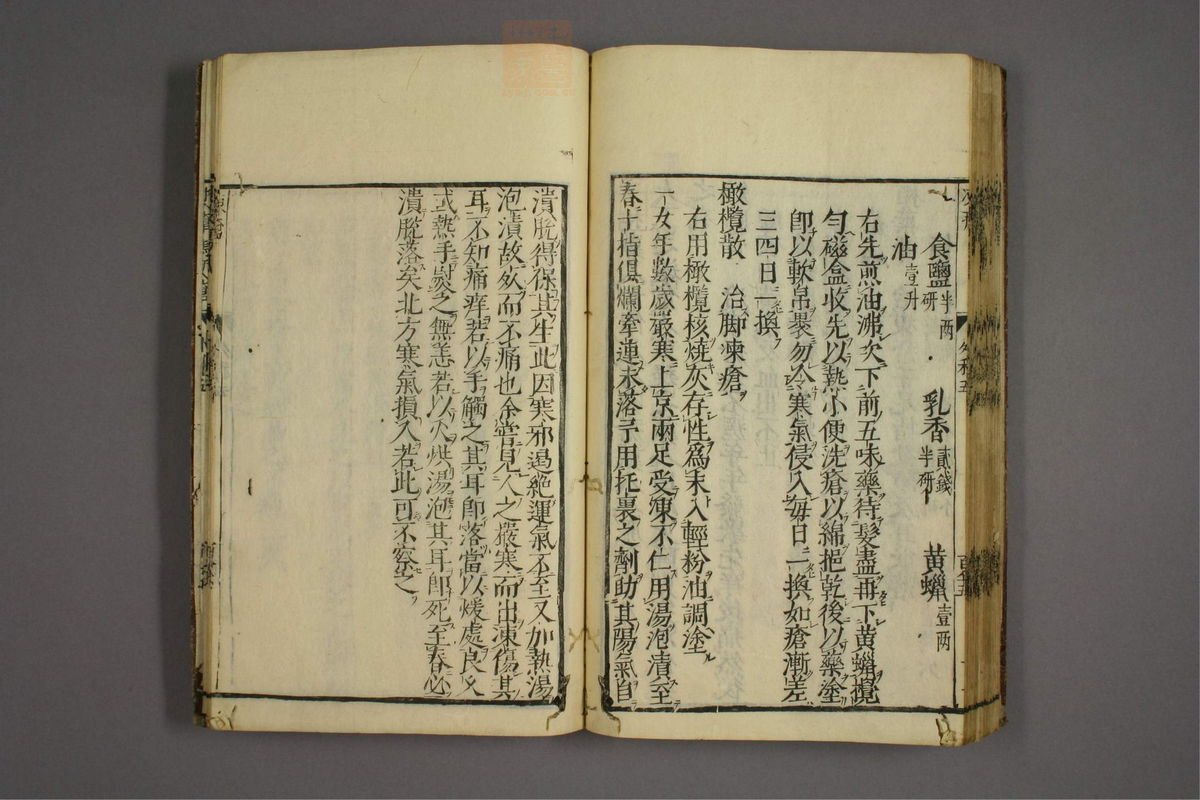 食鹽半兩研 乳香貳錢半研 黃蠟壹兩
油壹升
右先煎油沸次下前五味藥待髮盡再下黃蠟攪
勻磁盒收先以熱小便洗瘡以綿挹乾後以藥塗
即以軟帛裹勿令寒氣侵入每日二換如瘡漸差
三四日一換
橄欖散 治脚凍瘡
右用橄欖核燒灰存性爲末入輕粉油調塗
一女年數歲嚴寒上京兩足受凍不仁用湯泡漬至
春十指俱爛牽連未落予用托裏之劑助其陽氣自
潰脫得保其生此因寒邪遏絕運氣不至又加熱湯
泡漬故死而不痛也余嘗見人之嚴寒而出凍傷其
耳不知痛痒若以手觸之其耳即落當以煖處良久
或熱手熨之無恙若以火烘湯泡其耳即死至春必
潰脫落矣北方寒氣損人若此可不察之